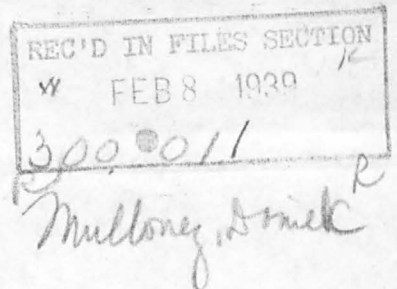 REC'D IN FILES SECTION
W FEB 8 1939 K
300.011
R R
Mulloney,